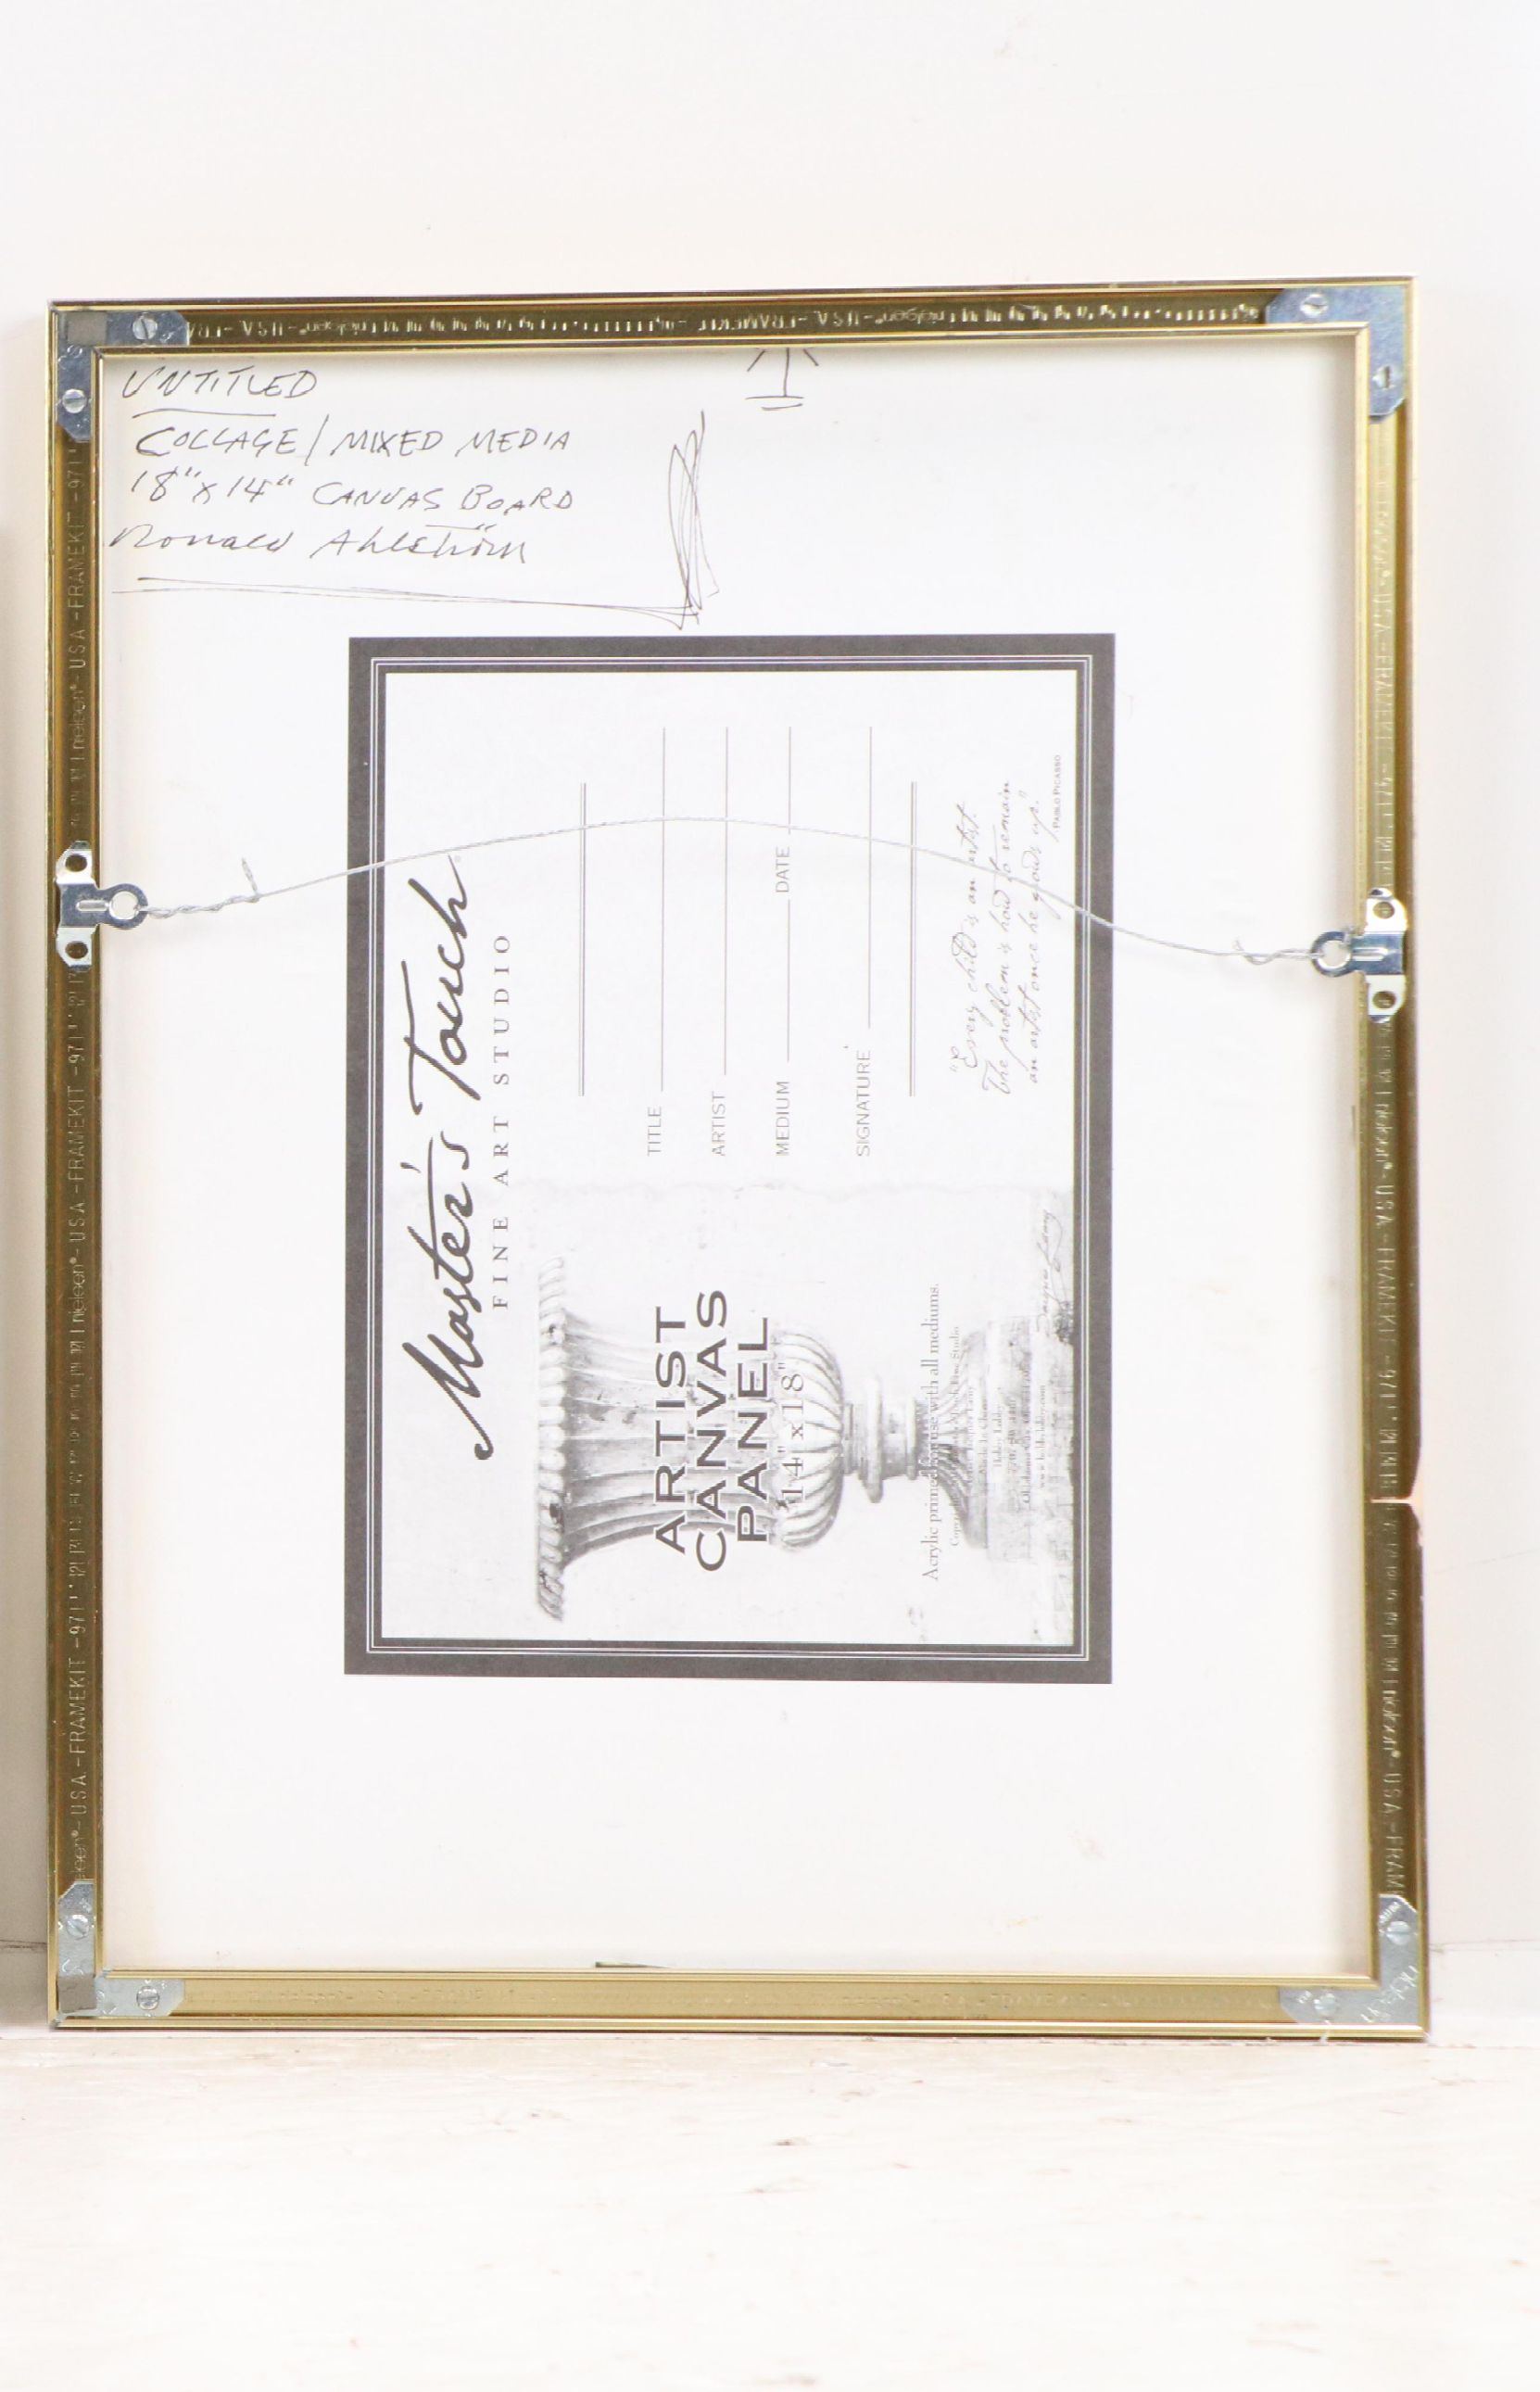 UNTITLED
COLLAGE/MIXED MEDIA
18"x14" CANVAS BOARD
Ronald Ahlström
Master's Touch
FINE ART STUDIO
TITLE
ARTIST
MEDIUM DATE
SIGNATURE
"Every child is an artist.
The problem is how to remain
an artist once he grows up."
PABLO PICASSO
ARTIST
CANVAS
PANEL
14" x 18"
Acrylic primed for use with all mediums.
nielsen® - USA - FRAMEKIT - 97